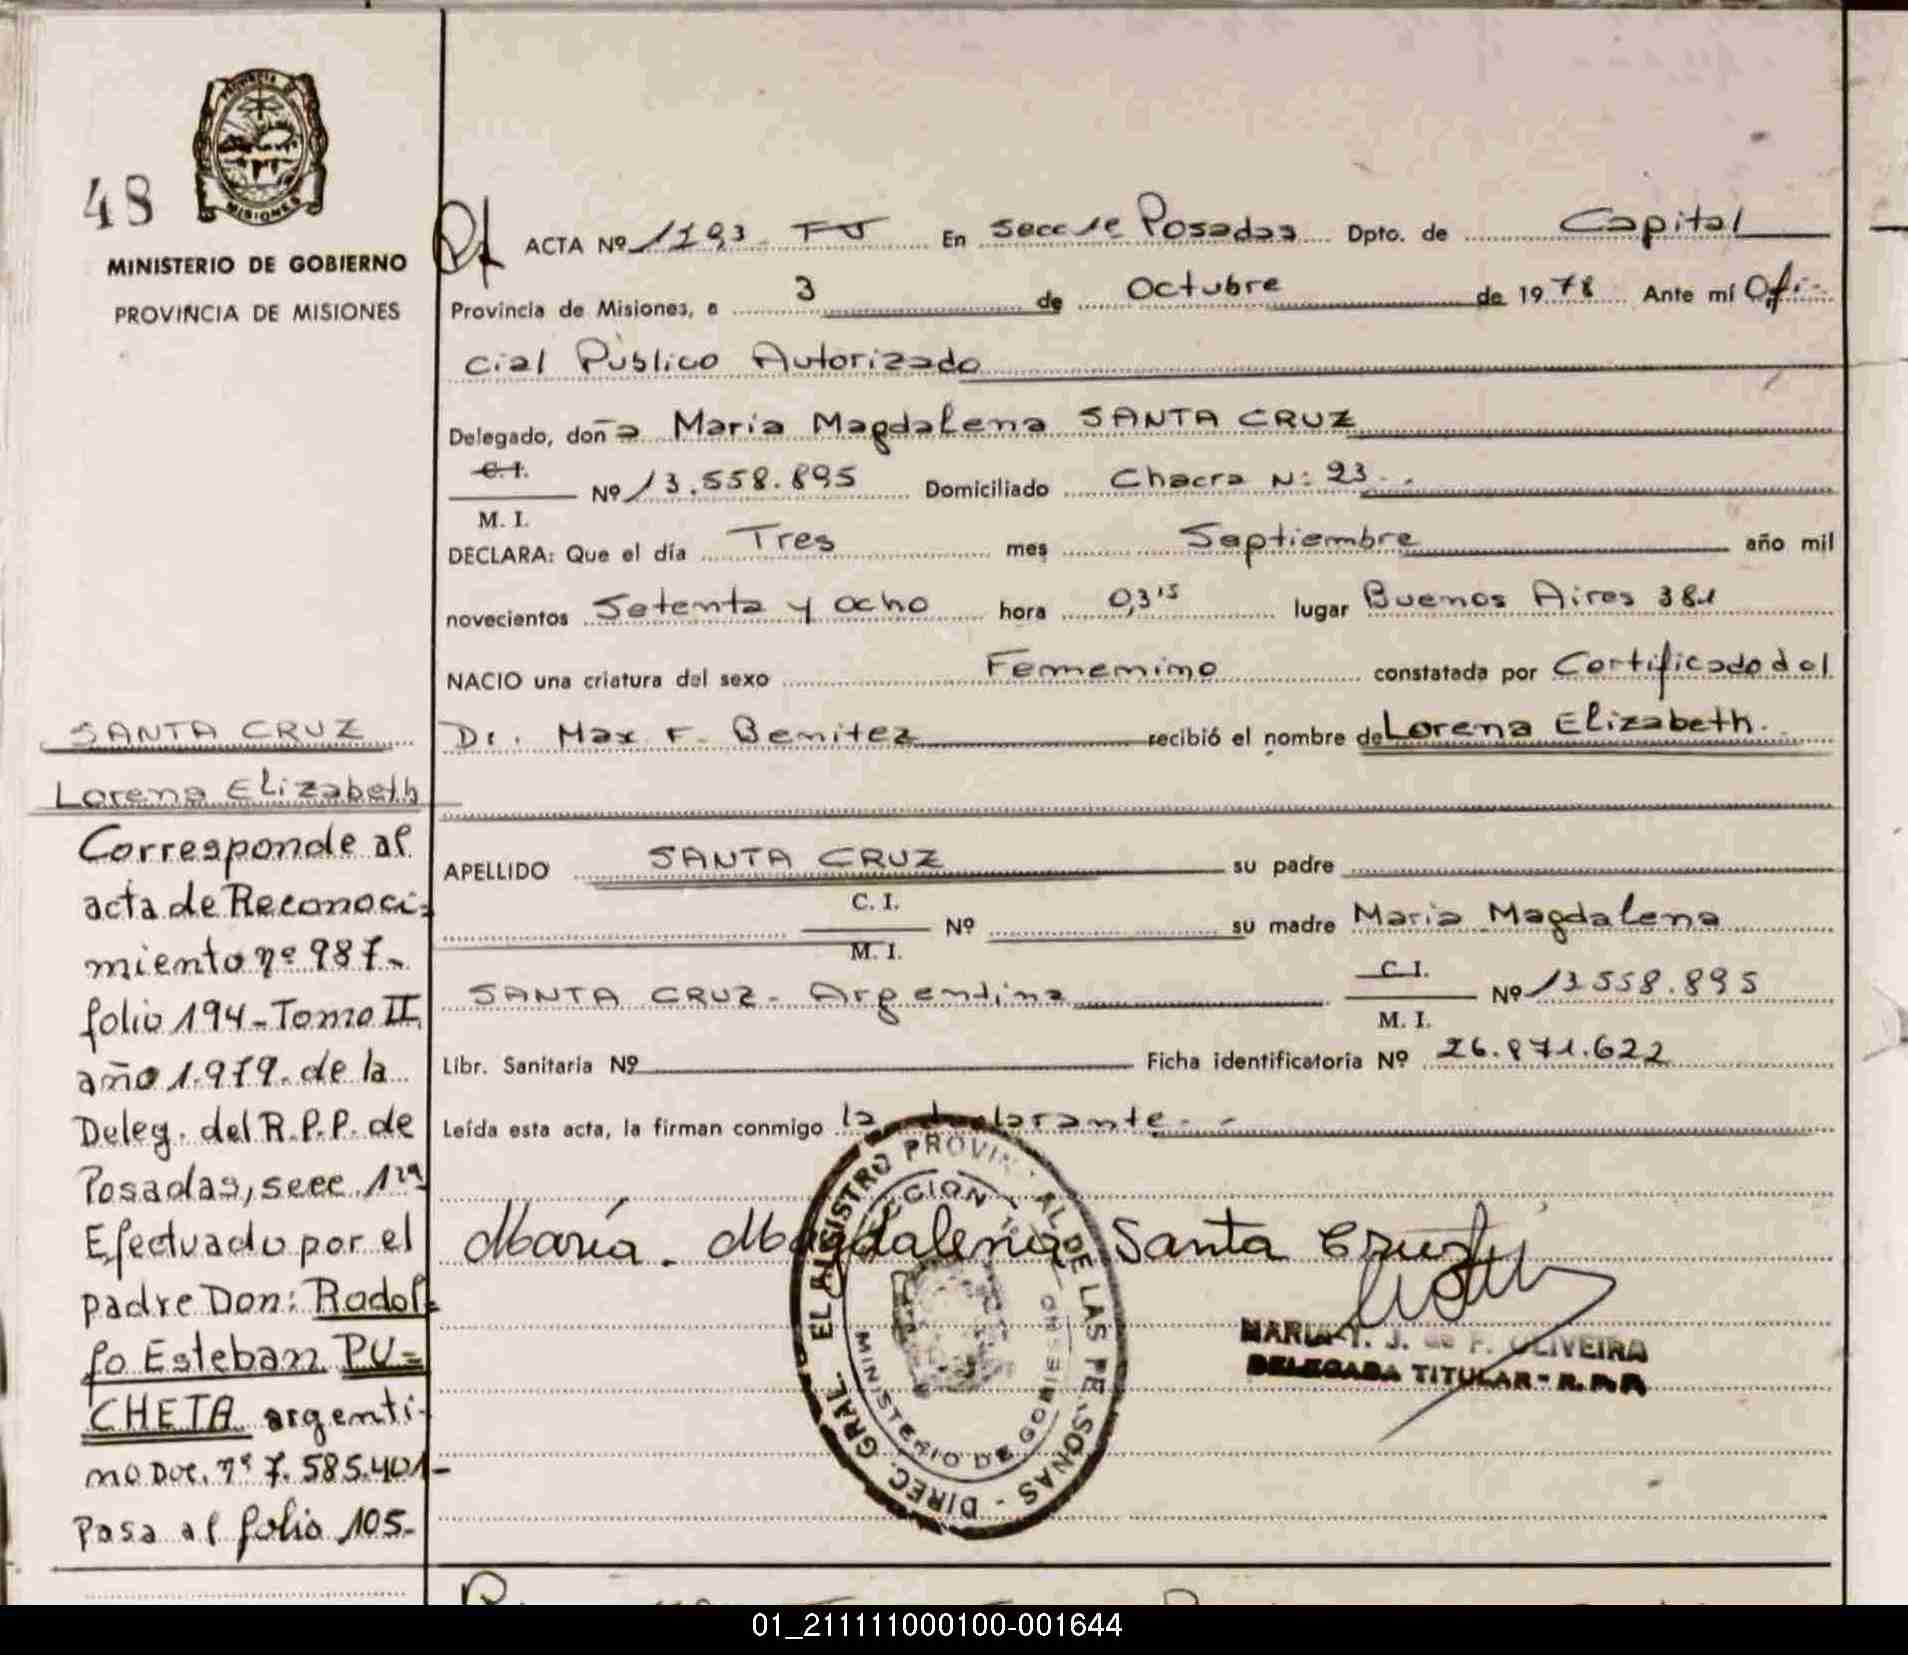 48
MINISTERIO DE GOBIERNO
PROVINCIA DE MISIONES
ACTA Nº 1193 En Secc 1e Posadas Dpto. de Capital
Provincia de Misiones, a 3 de Octubre de 1978 Ante mi Ofi-
cial Público Autorizado
Delegado, doña Maria Magdalena SANTA CRUZ
C.I.
M. I.
Nº 13.558.895 Domiciliado Chacra N: 23
DECLARA: Que el día Tres mes Septiembre año mil
novecientos Setenta y ocho hora 0,315 lugar Buenos Aires 381
NACIO una criatura del sexo Femenino constatada por Certificado del
Dr. Max F. Benitez recibió el nombre de Lorena Elizabeth.
APELLIDO SANTA CRUZ su padre
C. I.
M. I.
Nº su madre Maria Magdalena
SANTA CRUZ - Argentina
C.I.
M. I.
Nº 13558.895
Libr. Sanitaria Nº Ficha identificatoria Nº 26.871.622
Leída esta acta, la firman conmigo la declarante.-
María. Magdalena Santa Cruz
MARIA T. J. de F. OLIVEIRA
DELEGADA TITULAR - R.P.P.
DIREC. GRAL. EL REGISTRO PROVINCIAL DE LAS PERSONAS
SECCION 1
MINISTERIO DE GOBIERNO
SANTA CRUZ
Lorena Elizabeth
Corresponde al
acta de Reconoci-
miento nº 987-
folio 194-Tomo II
año 1.979. de la
Deleg. del R.P.P. de
Posadas, secc. 1ra
Efectuado por el
padre Don: Rodol-
fo Esteban PU=
CHETA argenti-
no Doc. nº 7.585.401-
Pasa al folio 105-
01_211111000100-001644